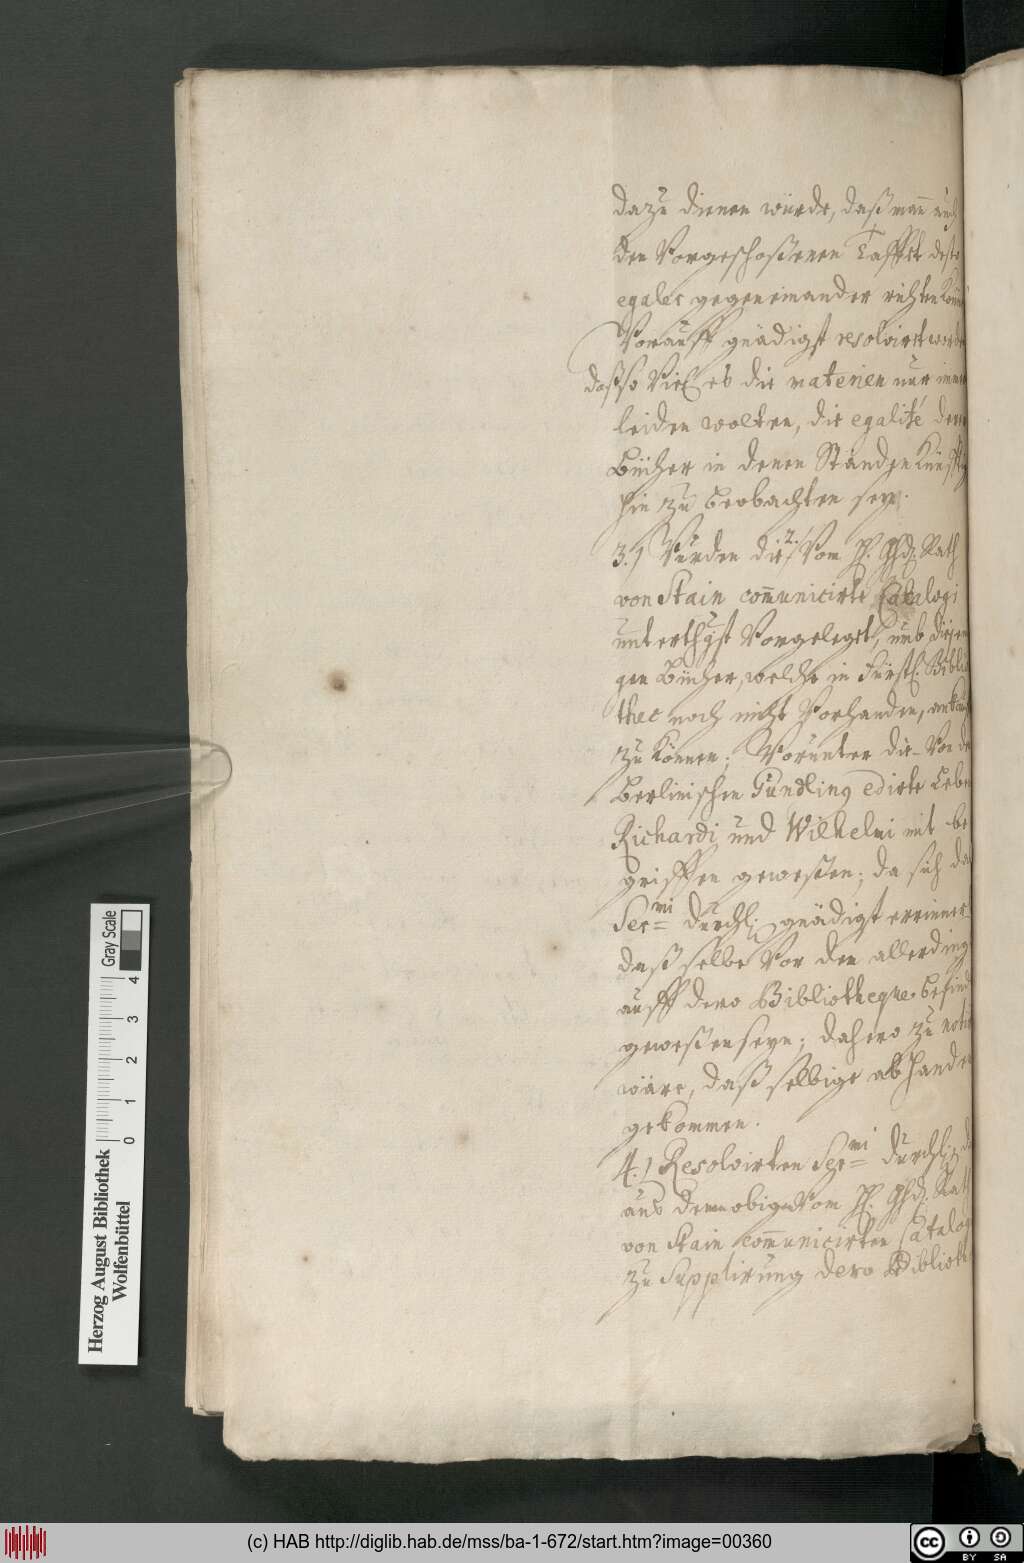 dazu dienen würde, daß man auch
den Vorgeschoßenen Taffet desto
egaler gegeneinander richten könn
Worauff gnädigst resolvirt worden
daß so Viel es die materien nur immer
leiden wolten, die egalité derer
Bücher in denen Ständen Künfftig
hin zu beobachten sey.
3.) Wurden die 2. Vom H. Ghd. Rath
von Stain com̅unicirte Catalogi
unterthgst Vorgeleget, umb diejeni
gen Bücher, welche in Fürstl. Biblio
thec noch nicht Vorhanden, ankauf
zu können; Worunter die Von de
Berlinischen Gundling edirte Leben
Richardi und Wilhelmi mit be
griffen geweßen; da sich da
Sermi Durchl. gnädigst errinner
daß selbe Vor dem allerdings
auff dero Bibliotheque befindl
geweßen seyn; dahero zu notir
wäre, daß selbige abhanden
gekommen.
4.) Resolvirten Sermi Durchl. di
aus dem obigen Vom H. Ghd. Rath
von Stain com̅unicirten Catalog
zu Supplirung dero Biblioth
Gray Scale
0 1 2 3 4
Herzog August Bibliothek
Wolfenbüttel
(c) HAB http://diglib.hab.de/mss/ba-1-672/start.htm?image=00360
cc BY SA